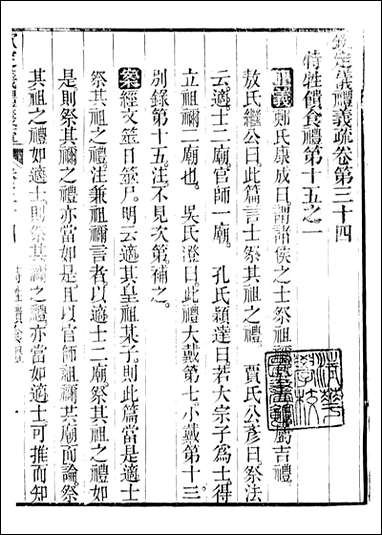 欽定儀禮義疏卷第三十四
特牲饋食禮第十五之一
正義鄭氏康成曰謂諸侯之士祭祖禰屬吉禮
敖氏繼公曰此篇言士祭其祖之禮 賈氏公彥曰祭法
云適士二廟官師一廟。 孔氏穎達曰若大宗子爲士得
立祖禰二廟也。 吳氏澄曰此禮大戴第七小戴第十三
別錄第十五。注不見次第。補之。
案經文筮日筮尸。明云適其皇祖某子。則此篇當是適士
祭其祖之禮。注兼祖禰言者。以適士二廟。祭其祖之禮如
是。則祭其禰之禮亦當如是。且以官師祖禰共廟而論。祭
其祖之禮如適士。則祭其禰之禮亦當如適士。可推而知
清華學校